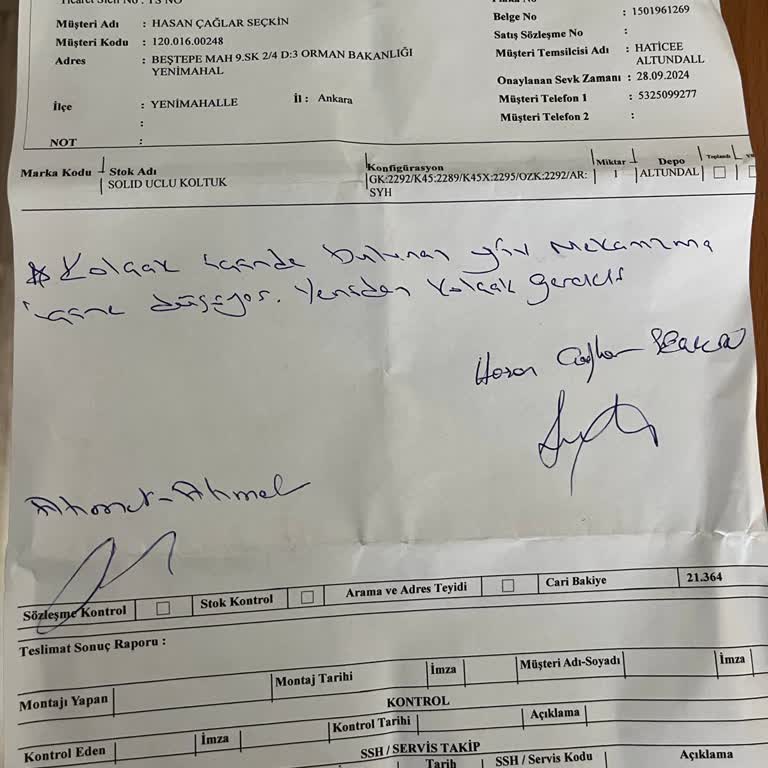 Ticaret Sicil No : TS NO
Müşteri Adı : HASAN ÇAĞLAR SEÇKİN
Müşteri Kodu : 120.016.00248
Adres : BEŞTEPE MAH 9.SK 2/4 D:3 ORMAN BAKANLIĞI
YENİMAHAL
İlçe : YENİMAHALLE İl : Ankara
:
NOT :
Belge No : 1501961269
Satış Sözleşme No :
Müşteri Temsilcisi Adı : HATİCEE
ALTUNDALL
Onaylanan Sevk Zamanı : 28.09.2024
Müşteri Telefon 1 : 5325099277
Müşteri Telefon 2 :
Marka Kodu Stok Adı Konfigürasyon Miktar Depo Toplandı
SOLID UCLU KOLTUK GK:2292/K45:2289/K45X:2295/OZK:2292/AR: 1 ALTUNDAL
SYH
* Kolçak içinde bulunan yay Mekanizma
içine düşüyor. Yeniden Kolçak
Hasan Çağlar
Ahmet-Ahmet
Sözleşme Kontrol Stok Kontrol Arama ve Adres Teyidi Cari Bakiye 21.364
Teslimat Sonuç Raporu :
Montajı Yapan Montaj Tarihi İmza Müşteri Adı-Soyadı İmza
KONTROL
Kontrol Eden İmza Kontrol Tarihi Açıklama
SSH / SERVİS TAKİP
Tarih SSH / Servis Kodu Açıklama